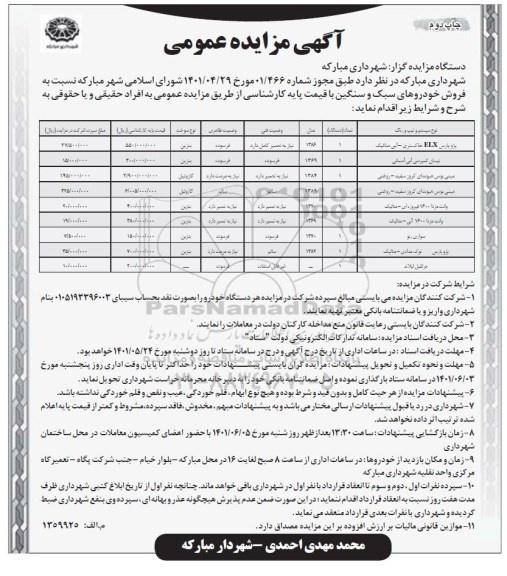 چاپ دوم
شهرداری مبارکه
آگهی مزایده عمومی
دستگاه مزایده گزار: شهرداری مبارکه
شهرداری مبارکه در نظر دارد طبق مجوز شماره ۰۱/۴۶۶ مورخ ۱۴۰۱/۰۴/۲۹ شورای اسلامی شهر مبارکه نسبت به
فروش خودروهای سبک و سنگین با قیمت پایه کارشناسی از طریق مزایده عمومی به افراد حقیقی و یا حقوقی به
شرح و شرایط زیر اقدام نماید:
نوع سیستم و تیپ و رنگ تعداد(دستگاه) مدل وضعیت فنی وضعیت ظاهری نوع سوخت قیمت پایه کارشناسی(ریال) مبلغ سپرده شرکت در مزایده(ریال)
پژو پارس ELX خاکستری – آبی متالیک ۱ ۱۳۸۶ نیاز به تعمیر کامل دارد فرسوده بنزین
نیسان کمپرسی آبی آسمانی ۱ ۱۳۶۹ نیاز به تعمیر دارد فرسوده بنزین
مینی بوس هیوندای کروز سفید – روغنی ۱ ۱۳۸۴ نیاز به تعمیر دارد نیاز به مرمت دارد گازوئیل
مینی بوس هیوندای کروز سفید – روغنی ۱ سالم گازوئیل
وانت مزدا ۱۶۰۰ ۱ نیاز به تعمیر دارد بنزین
وانت مزدا ۱۶۰۰ آبی – متالیک ۱ نیاز به تعمیر دارد بنزین
سواری رنو ۱ فرسوده بنزین
پژو پارس نوک مدادی – متالیک ۱ ۱۳۸۶ سالم نیاز به مرمت دارد بنزین
جرثقیل ۱ غیرقابل استفاده فرسوده
شرایط شرکت در مزایده:
۱- شرکت کنندگان مزایده می بایستی مبالغ سپرده شرکت در مزایده هر دستگاه خودرو را بصورت نقد بحساب سیبای ۰۱۰۵۱۹۳۳۹۶۰۰۳ بنام
شهرداری واریز و یا ضمانتنامه بانکی معتبر تهیه نمایند.
۲- شرکت کنندگان بایستی رعایت قانون منع مداخله کارکنان دولت در معاملات را نمایند.
۳- محل دریافت اسناد مزایده: سامانه تدارکات الکترونیکی دولت "ستاد"
۴- مهلت دریافت اسناد: در ساعات اداری از تاریخ درج آگهی و درج در سامانه ستاد تا روز دوشنبه مورخ ۱۴۰۱/۰۵/۲۴ خواهد بود.
۵- مهلت و نحوه تکمیل و تحویل پیشنهادات: مزایده گران بایستی پیشنهادات خود را حداکثر تا پایان وقت اداری روز پنجشنبه مورخ
۱۴۰۱/۰۶/۰۳ در سامانه ستاد بارگذاری نموده و اصل ضمانتنامه بانکی خود را به دبیرخانه محرمانه حراست شهرداری تحویل نماید.
۶- پیشنهادات مزایده از هر حیث کامل و بدون قید و شرط بوده و هیچ نوع ابهام، قلم خوردگی، عیب و نقص و قلم خوردگی نداشته باشد.
۷- شهرداری در رد یا قبول پیشنهادات ارسالی مختار می باشد و به پیشنهادات مبهم، مخدوش، فاقد سپرده، مشروط و کمتر از قیمت پایه اعلام
شده ترتیب اثر داده نخواهد شد.
۸- زمان بازگشایی پیشنهادات: ساعت ۱۳:۳۰ بعدازظهر روز شنبه مورخ ۱۴۰۱/۰۶/۰۵ با حضور اعضای کمیسیون معاملات در محل ساختمان
شهرداری
۹- زمان و مکان بازدید از خودروها: در ساعات اداری از ساعت ۸ صبح لغایت ۱۶ در محل مبارکه – بلوار خیام – جنب شرکت پگاه – تعمیرگاه
مرکزی واحد نقلیه شهرداری مبارکه
۱۰- سپرده نفرات اول، دوم و سوم تا انعقاد قرارداد با نفر اول در شهرداری باقی خواهد ماند. چنانچه نفر اول از تاریخ ابلاغ کتبی شهرداری ظرف
مدت هفت روز نسبت به انعقاد قرارداد اقدام ننماید، در این صورت ضمن عدم پذیرش هیچگونه عذر و بهانه ای، سپرده وی بنفع شهرداری ضبط
گردیده و شهرداری با نفرات بعدی قرارداد منعقد می نماید.
۱۱- موازین قانونی مالیات بر ارزش افزوده بر این مزایده مصداق دارد.
م.الف: ۱۳۵۹۹۲۵
محمد مهدی احمدی – شهردار مبارکه
ParsNamadData